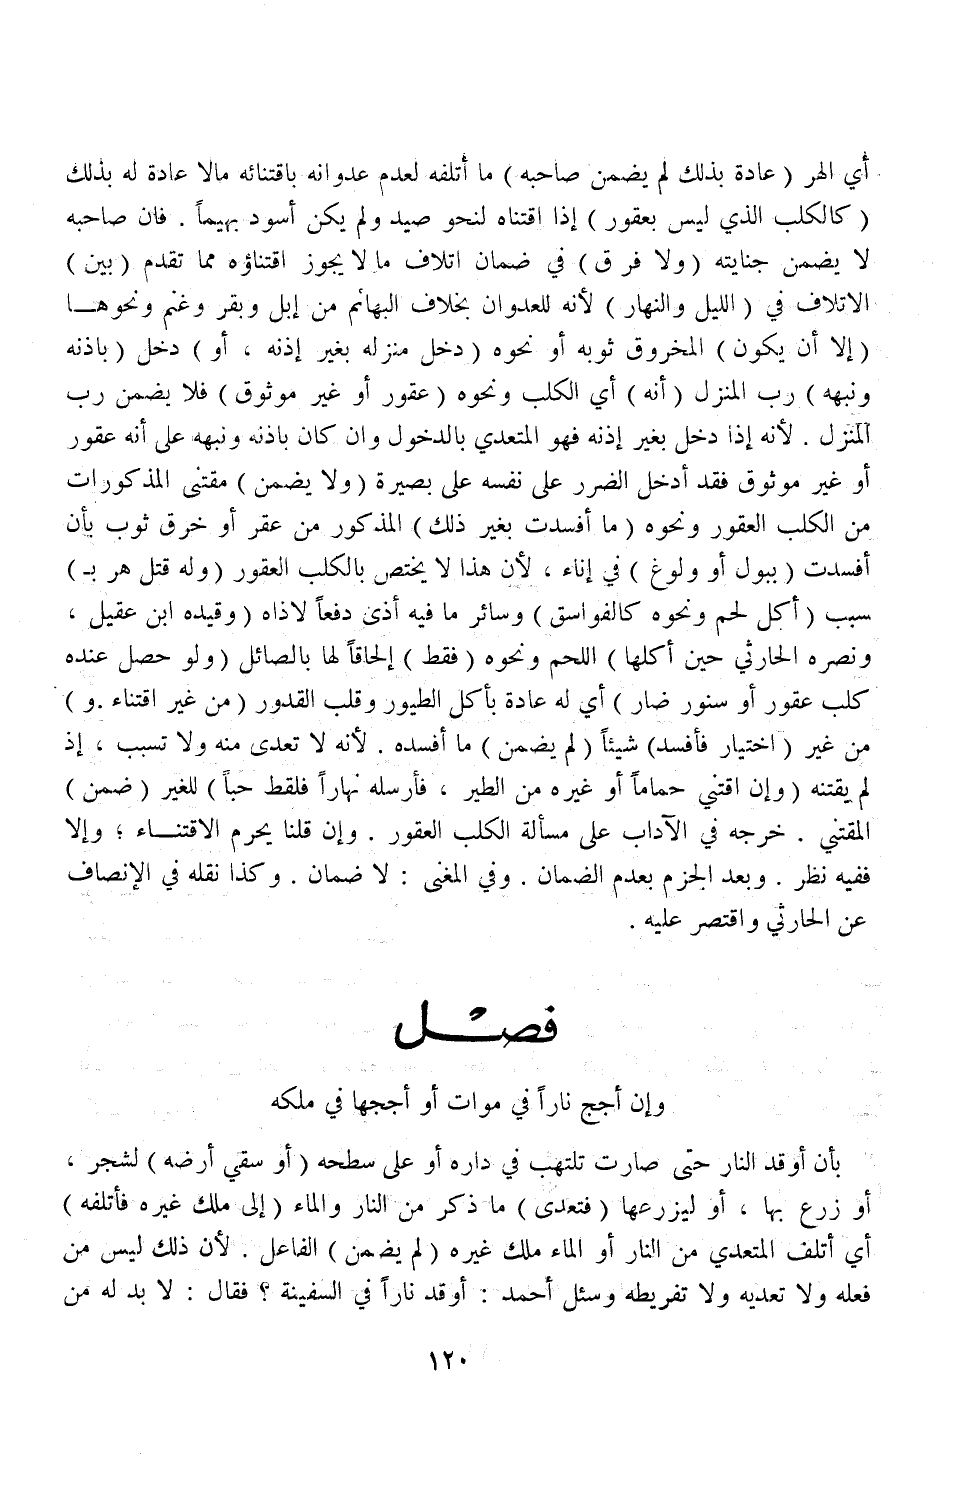 أي الهر ( عادة بذلك لم يضمن صاحبه ) ما أتلفه لعدم عدوانه باقتنائه مالا عادة له بذلك
( كالكلب الذي ليس بعقور ) إذا اقتناه لنحو صيد ولم يكن أسود بهيماً . فان صاحبه
لا يضمن جنايته ( ولا فرق ) في ضمان اتلاف ما لا يجوز اقتناؤه مما تقدم ( بين )
الاتلاف في ( الليل والنهار ) لأنه للعدوان بخلاف البهائم من إبل وبقر وغنم ونحوهـــا
( إلا أن يكون ) المخروق ثوبه أو نحوه ( دخل منزله بغير إذنه ، أو ) دخل ( باذنه
ونبهه ) رب المنزل ( أنه ) أي الكلب ونحوه ( عقور أو غير موثوق ) فلا يضمن رب
المنزل . لأنه إذا دخل بغير إذنه فهو المتعدي بالدخول وان كان باذنه ونبهه على أنه عقور
أو غير موثوق فقد أدخل الضرر على نفسه على بصيرة ( ولا يضمن ) مقتنى المذكورات
من الكلب العقور ونحوه ( ما أفسدت بغير ذلك ) المذكور من عقر أو خرق ثوب بأن
أفسدت ( ببول أو ولوغ ) في إناء ، لأن هذا لا يختص بالكلب العقور ( وله قتل هر بـ )
سبب ( أكل لحم ونحوه كالفواسق ) وسائر ما فيه أذى دفعاً لاذاه ( وقيده ابن عقيل ،
ونصره الحارثي حين أكلها ) اللحم ونحوه ( فقط ) إلحاقاً لها بالصائل ( ولو حصل عنده
كلب عقور أو سنور ضار ) أي له عادة بأكل الطيور وقلب القدور ( من غير اقتناء .و )
من غير ( اختيار فأفسد) شيئاً ( لم يضمن ) ما أفسده . لأنه لا تعدى منه ولا تسبب ، إذ
لم يقتنه ( وإن اقتني حماماً أو غيره من الطير ، فأرسله نهاراً فلقط حباً ) للغير ( ضمن )
المقتني . خرجه في الآداب على مسألة الكلب العقور . وإن قلنا يحرم الاقتنـــاء ؛ وإلا
ففيه نظر . وبعد الجزم بعدم الضمان . وفي المغنى : لا ضمان . وكذا نقله في الإنصاف
عن الحارثي واقتصر عليه .
فصْل
وإن أجج ناراً في موات أو أججها في ملكه
بأن أوقد النار حتى صارت تلتهب في داره أو على سطحه ( أو سقي أرضه ) لشجر ،
أو زرع بها ، أو ليزرعها ( فتعدى ) ما ذكر من النار والماء ( إلى ملك غيره فأتلفه )
أي أتلف المتعدي من النار أو الماء ملك غيره ( لم يضمن ) الفاعل . لأن ذلك ليس من
فعله ولا تعديه ولا تفريطه وسئل أحمد : أوقد ناراً في السفينة ؟ فقال : لا بد له من
١٢٠